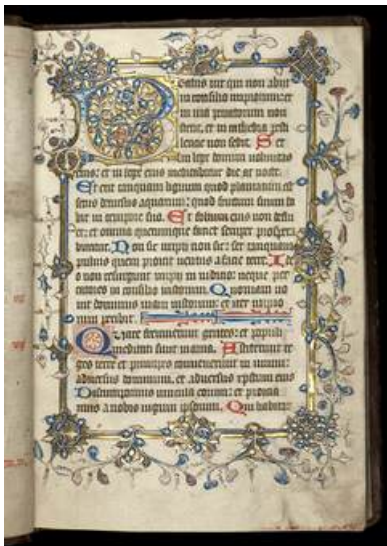 Beatus vir qui non abiit
in consilio impiorum: et
in via peccatorum non
stetit, et in cathedra pesti
lencie non sedit. Set
in lege domini voluntas
eius: et in lege eius meditabitur die ac nocte.
Et erit tanquam lignum quod plantatum est
secus decursus aquarum: quod fructum suum da
bit in tempore suo. Et folium eius non deflu
et: et omnia quecunque faciet semper prospera
buntur. Non sic impii non sic: set tanquam
pulvis quem proicit ventus a facie terre. Ide
o non resurgunt impii in iudicio: neque pec
catores in consilio iustorum. Quoniam no
vit dominus viam iustorum: et iter impio
rum peribit.
Quare fremuerunt gentes: et populi
meditati sunt inania. Astiterunt re
ges terre et principes convenerunt in unum:
adversus dominum, et adversus christum eius
Dirumpamus vincula eorum: et proicia
mus a nobis iugum ipsorum. Qui habitat